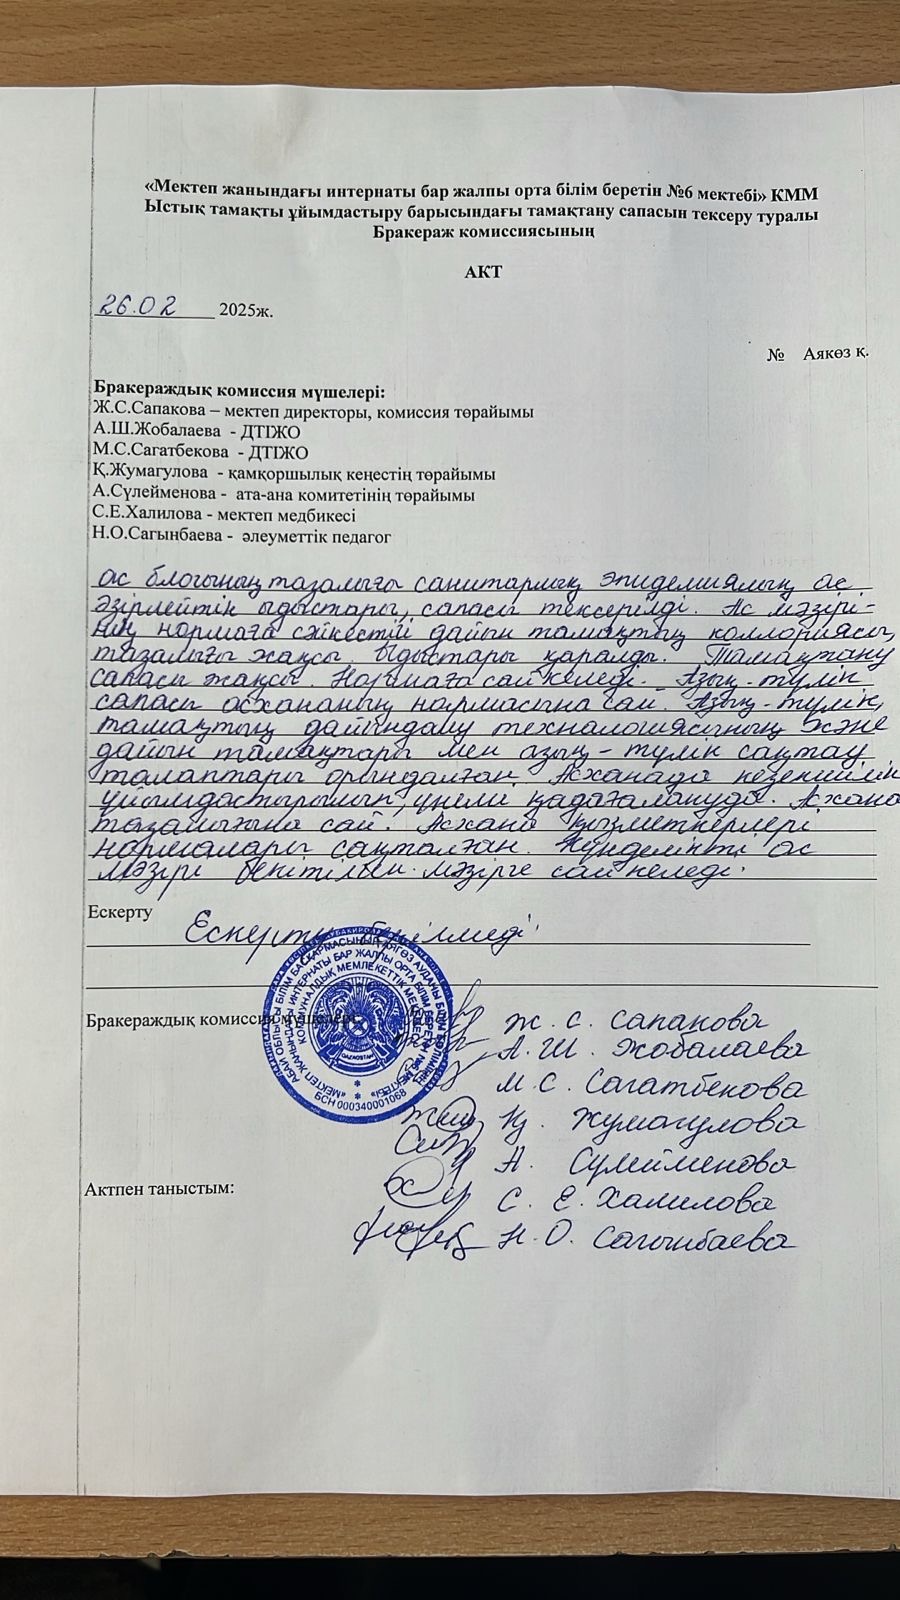 «Мектеп жанындағы интернаты бар жалпы орта білім беретін №6 мектебі» КММ
Ыстық тамақты ұйымдастыру барысындағы тамақтану сапасын тексеру туралы
Бракераж комиссиясының
АКТ
26.02 2025ж.
№ Аякөз қ.
Бракераждық комиссия мүшелері:
Ж.С.Сапакова – мектеп директоры, комиссия төрайымы
А.Ш.Жобалаева - ДТІЖО
М.С.Сагатбекова - ДТІЖО
Қ.Жумагулова - қамқоршылық кеңестің төрайымы
А.Сүлейменова - ата-ана комитетінің төрайымы
С.Е.Халилова - мектеп медбикесі
Н.О.Сагынбаева - әлеуметтік педагог
ас блогының тазалығы санитарлық эпидемиялық ас
әзірлейтін ыдыстары, сапасы тексерілді. Ас мәзірі-
нің нормаға сәйкестігі дайын тамақтың каллориясы,
тазалығы жақсы. Ыдыстары қаралды. Тамақтану
сапасы жақсы. Нормаға сай келеді. Азық-түлік
сапасы асхананың нормасына сай. Азық-түлік,
тамақтың дайындалу технологиясының және
дайын тамақтары мен азық-түлік сақтау
талаптары орындалған. Асханада кезекшілік
ұйымдастырылып, үнемі қадағалануда. Асхана
тазалығына сай. Асхана қызметкерлері
нормалары сақталған. Күнделікті ас
мәзірі бекітілген мәзірге сай келеді.
Ескерту
Ескерту берілмеді.
Бракераждық комиссия мүшелері:
Ж. С. Сапакова
А. Ш. Жобалаева
М. С. Сагатбекова
Қ. Жумагулова
А. Сулейменова
Актпен таныстым:
С. Е. Халилова
Н. О. Сагынбаева
АБАЙ ОБЛЫСЫ БІЛІМ БАСҚАРМАСЫНЫҢ АЯГӨЗ АУДАНЫ БІЛІМ БӨЛІМІНІҢ
«МЕКТЕП ЖАНЫНДАҒЫ ИНТЕРНАТЫ БАР ЖАЛПЫ ОРТА БІЛІМ БЕРЕТІН №6 МЕКТЕБІ»
КОММУНАЛДЫҚ МЕМЛЕКЕТТІК МЕКЕМЕСІ
QAZAQSTAN
БСН 000340001068